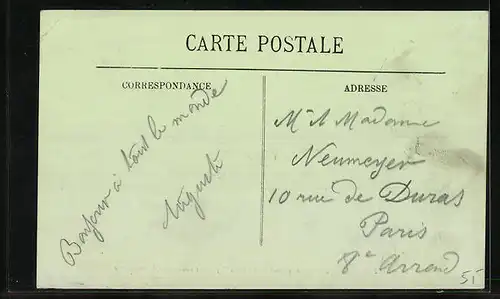 CARTE POSTALE
CORRESPONDANCE
Bonjour à tout le monde
Auguste
ADRESSE
Mr & Madame
Neumeyer
10 rue de Duras
Paris
8e Arrond
51